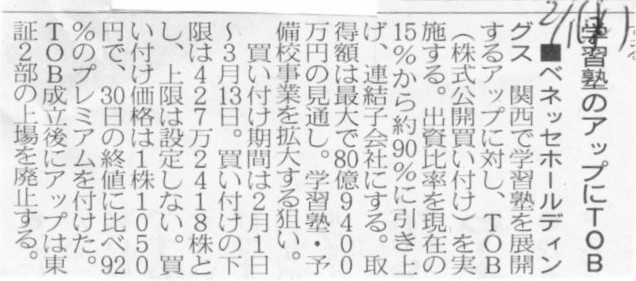 学習塾のアップにTOB
■ベネッセホールディン
グス　関西で学習塾を展開
するアップに対し、TOB
（株式公開買い付け）を実
施する。出資比率を現在の
15％から約90％に引き上
げ、連結子会社にする。取
得額は最大で80億9400
万円の見通し。学習塾・予
備校事業を拡大する狙い。
　買い付け期間は2月1日
～3月13日。買い付けの下
限は427万2418株と
し、上限は設定しない。買
い付け価格は1株1050
円で、30日の終値に比べ92
％のプレミアムを付けた。
TOB成立後にアップは東
証2部の上場を廃止する。